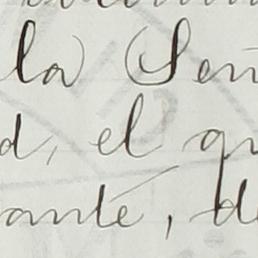 la Señ
d, el qu
ante, de